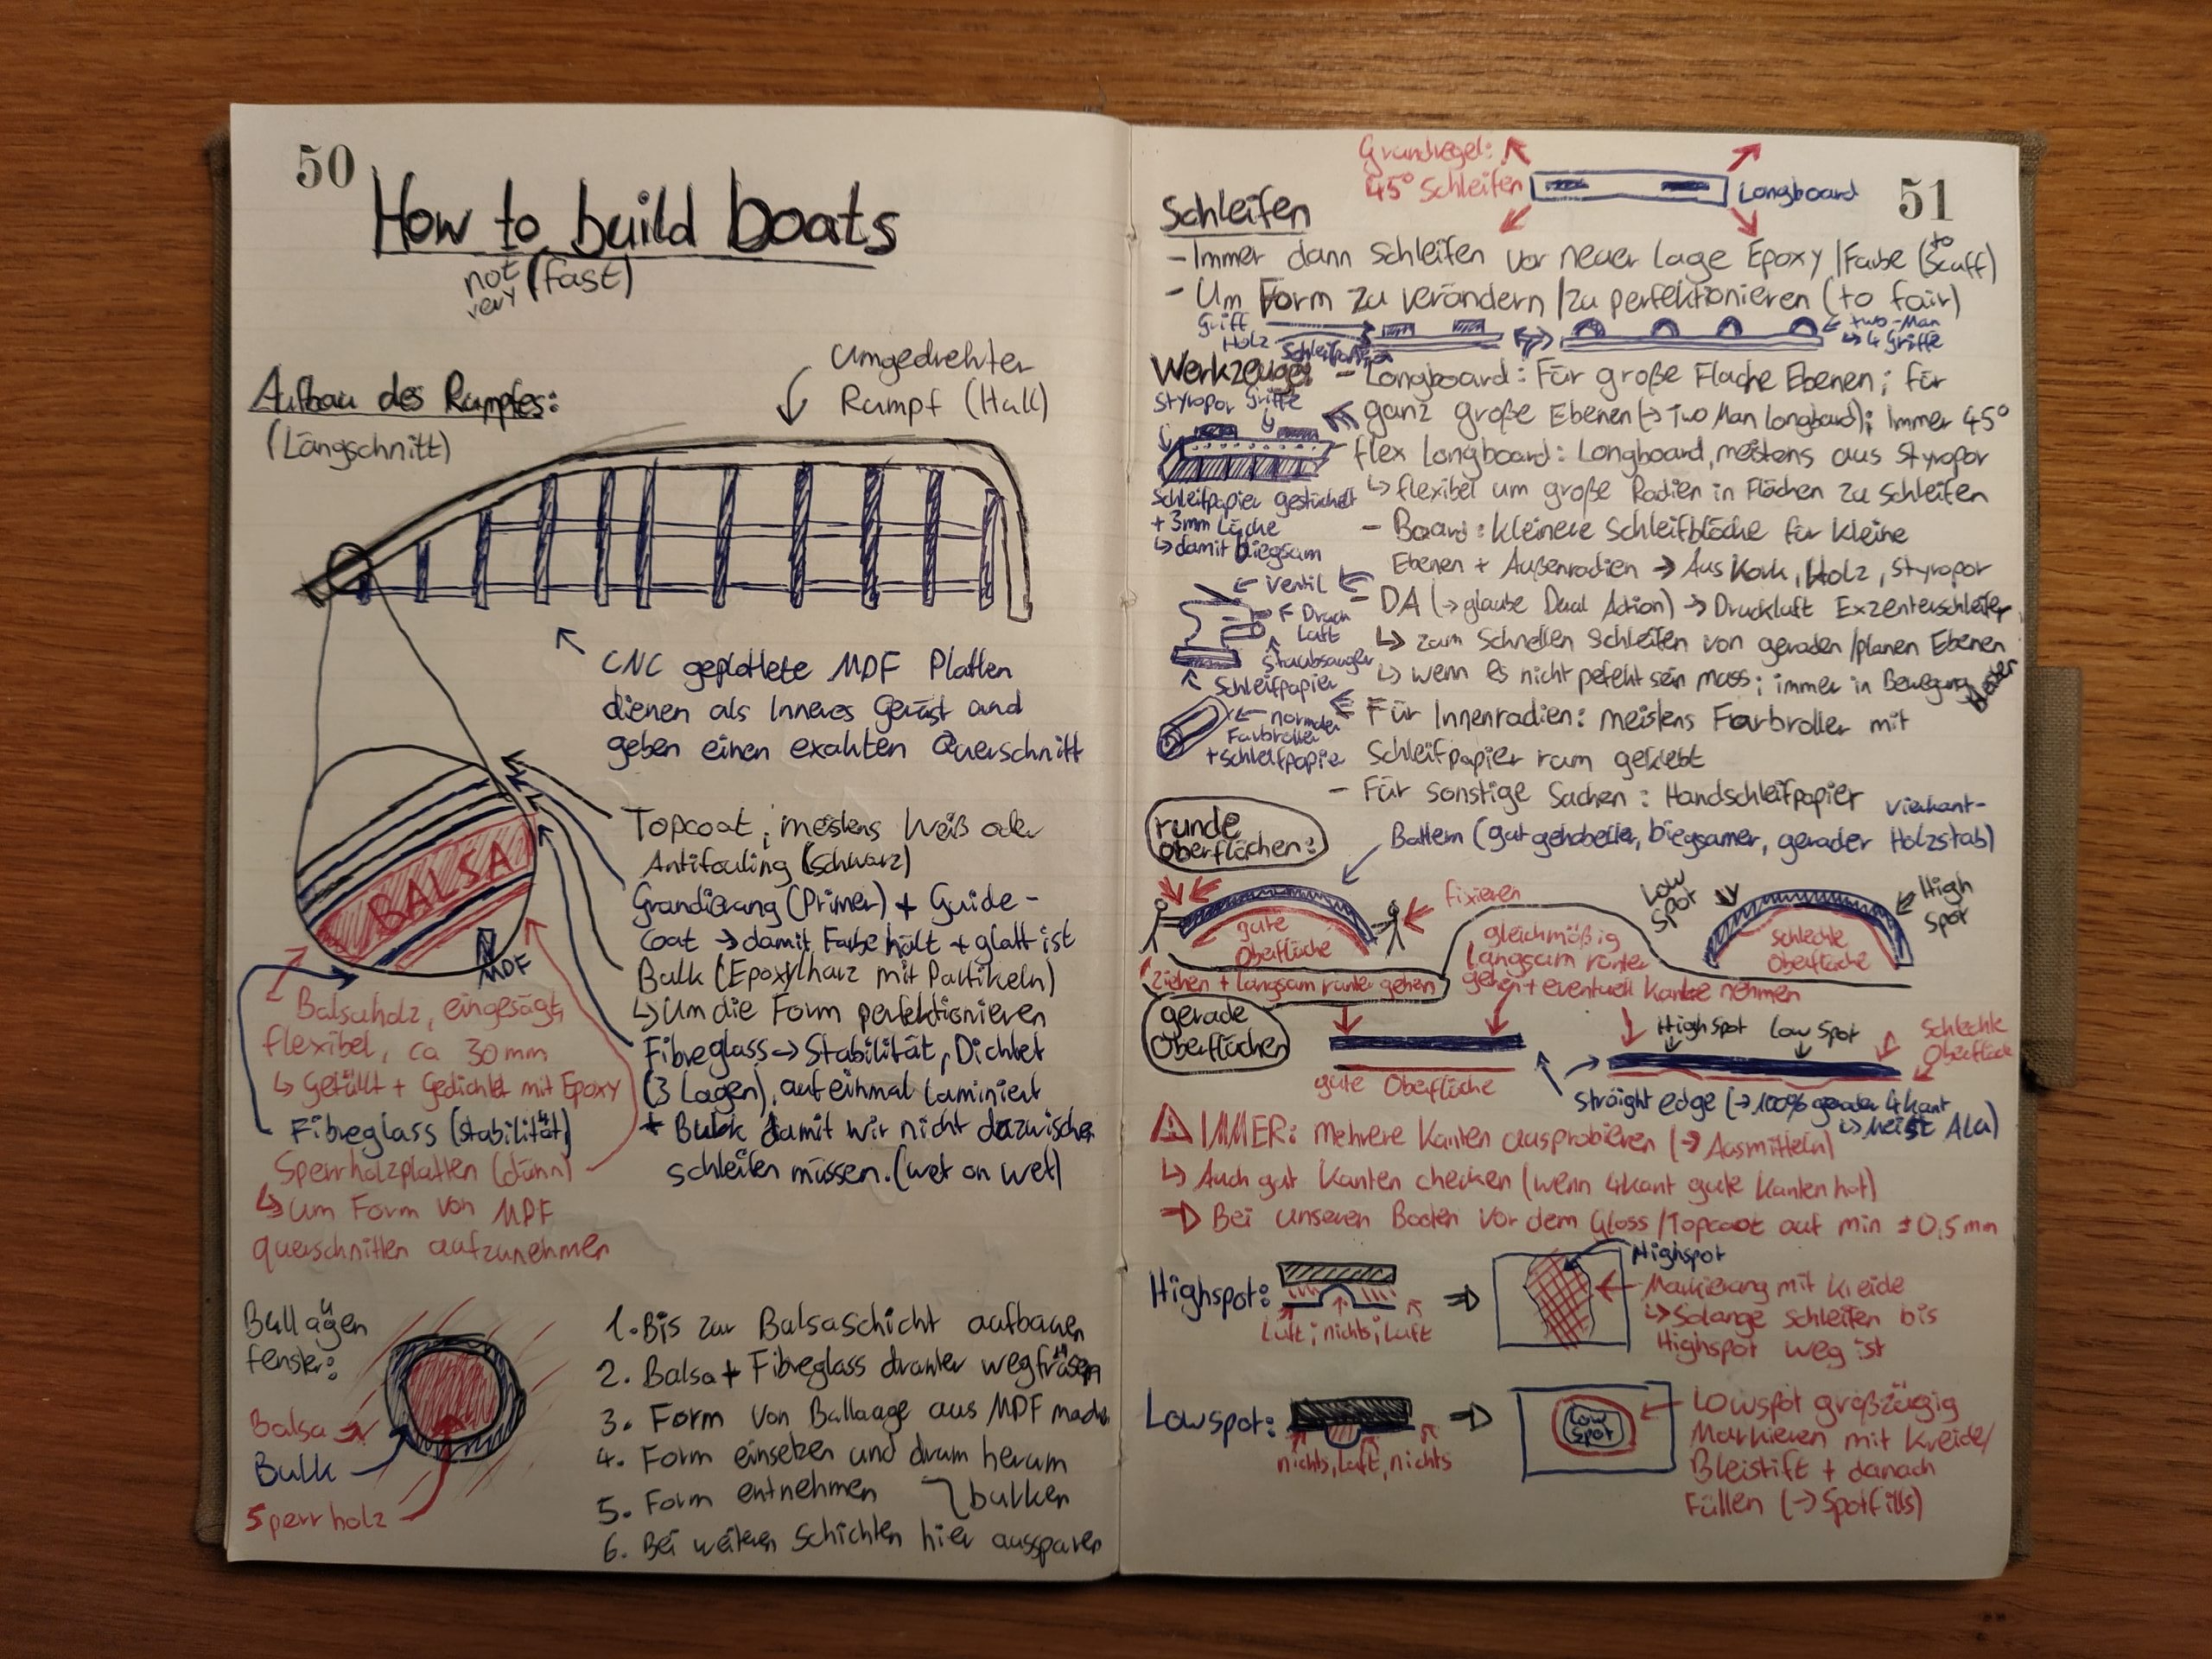 50
How to build boats
not very (fast)
Aufbau des Rumpfes:
(Längschnitt)
Umgedrehter
Rumpf (Hull)
CNC geplottete MDF Platten
dienen als Inneres Gerüst und
geben einen exakten Querschnitt
BALSA
MDF
Topcoat; meistens Weiß oder
Antifouling (schwarz)
Grundierung (Primer) + Guide-
coat → damit Farbe hält + glatt ist
Bulk (Epoxyharz mit Partikeln)
↳ Um die Form perfektionieren
Fibreglass → Stabilität, Dichtet
(3 Lagen), auf einmal laminiert
+ Bulk damit wir nicht dazwischen
schleifen müssen. (wet on wet)
Balsaholz, eingesägt,
flexibel, ca 30mm
↳ Gefüllt + Gedichtet mit Epoxy
Fibreglass (stabilität)
Sperrholzplatten (dünn)
↳ Um Form von MDF
querschnitten aufzunehmen
Bullaügen
fenster:
Balsa
Bulk
Sperrholz
1. Bis zur Balsaschicht aufbauen
2. Balsa + Fibreglass drunter wegfräsen
3. Form von Bullauge aus MDF machen
4. Form einsetzen und drum herum
5. Form entnehmen bulken
6. Bei weiteren Schichten hier aussparen
Grundregel:
45° Schleifen
Longboard
51
Schleifen
- Immer dann schleifen vor neuer Lage Epoxy/Farbe (to scuff)
- Um Form zu verändern/zu perfektionieren (to fair)
Griff
Holz
Schleifpapier
two-Man
↳ 4 Griffe
Werkzeuge: - Longboard: Für große Flache Ebenen; für
ganz große Ebenen (→ Two Man Longboard); Immer 45°
Styropor Griffe
flex Longboard: Longboard, meistens aus Styropor
↳ flexibel um große Radien in Flächen zu schleifen
Schleifpapier gestückelt
+ 3mm Lücke
↳ damit biegsam
- Board: kleinere Schleifblöcke für kleine
Ebenen + Außenradien → Aus Kork, Holz, Styropor
Ventil
Druck
Luft
Staubsauger
Schleifpapier
- DA (→ glaube Dual Action) → Druckluft Exzenterschleifer
↳ zum schnellen schleifen von geraden/planen Ebenen
↳ wenn es nicht pefekt sein muss; immer in Bewegung
normaler
Farbroller
+ Schleifpapier
Für Innenradien: meistens Farbroller mit
Schleifpapier rum geklebt
- Für sonstige Sachen: Handschleifpapier
runde
Oberflächen:
vierkant-
Battern (gut gehobelter, biegsamer, gerader Holzstab)
gute
Oberfläche
fixieren
Low
spot
High
spot
schlechte
Oberfläche
ziehen + langsam runter gehen
gleichmäßig
langsam runter
gehen + eventuell kante nehmen
gerade
Oberflächen
gute Oberfläche
Highspot Low spot
schlechte
Oberfläche
straight edge (→ 100% gerader 4kant
↳ meist Alu)
IMMER: mehrere Kanten ausprobieren (→ Ausmitteln)
↳ Auch gut Kanten checken (wenn 4kant gute Kanten hat)
⇒ Bei unseren Booten vor dem Gloss/Topcoat auf min ±0,5mm
Highspot:
Luft; nichts; Luft
Highspot
Markierung mit Kreide
↳ Solange schleifen bis
Highspot weg ist
Lowspot:
nichts, Luft, nichts
Low
spot
Lowspot großzügig
Markieren mit Kreide/
Bleistift + danach
Füllen (→ Spotfills)